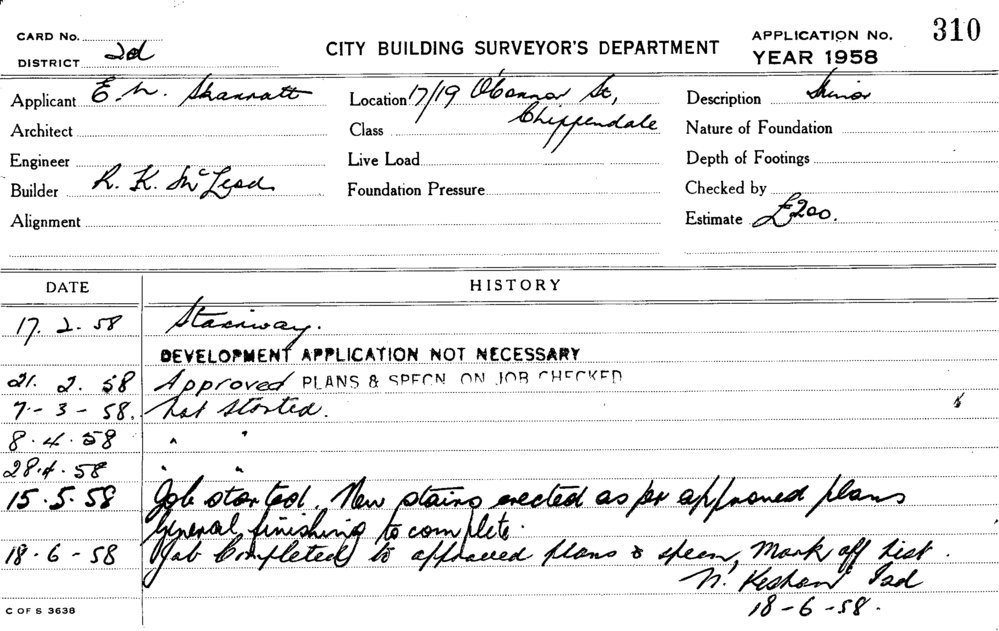 CARD No.
DISTRICT 2d
CITY BUILDING SURVEYOR'S DEPARTMENT
APPLICATION No. 310
YEAR 1958
Applicant E. W. Location 17/19 O'Connor St, Description Minor
Chippendale
Architect Class Nature of Foundation
Engineer Live Load Depth of Footings
Builder R. K. McLeod Foundation Pressure Checked by
Alignment Estimate £200.
DATE HISTORY
17. 2. 58 Stairway.
DEVELOPMENT APPLICATION NOT NECESSARY
21. 2. 58 Approved PLANS & SPECN ON JOB CHECKED
7 - 3 - 58. Not started.
8. 4. 58 " "
28. 4. 58 " "
15. 5. 58 Job started. New stairs erected as per approved plans
General finishing to complete.
18 - 6 - 58 Job Completed to approved plans & specn, Mark off list.
N. 2sd
18 - 6 - 58.
C OF S 3638